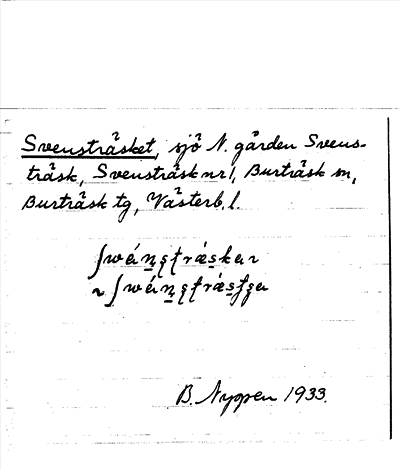 Svensträsket, sjö N. gården Svens-
träsk, Svensträsk nr 1, Burträsk sn,
Burträsk tg, Västerb. l.
ʃwéṇstrǽskar
~ ʃwéṇstrǽsʃga
B. Nygren 1933.